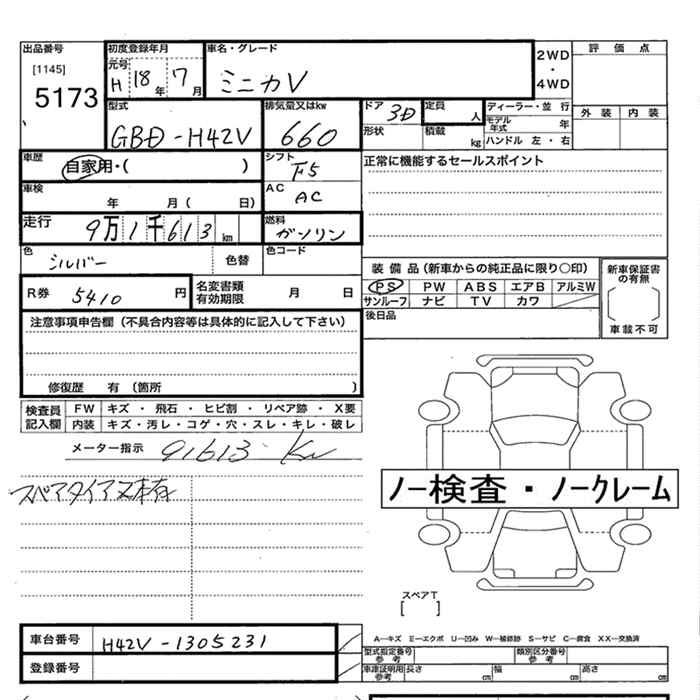 出品番号 初度登録年月 車名・グレード 2WD ・ 4WD 評価点
[1145] 元号
5173 H 18年 7月 ミニカV
型式 排気量又はkw ドア 3D 定員 人 ディーラー・並行 外装 内装
GBD-H42V 660 形状 積載 kg モデル年式 年
ハンドル 左・右
車歴 自家用・( ) シフト F5 正常に機能するセールスポイント
車検 年 月( 日) AC AC
走行 9万1千613km 燃料 ガソリン
色 シルバー 色替 色コード
装備品(新車からの純正品に限り〇印) 新車保証書の有無
R券 5410円 名変書類有効期限 月 日 PS PW ABS エアB アルミW
サンルーフ ナビ TV カワ
注意事項申告欄(不具合内容等は具体的に記入して下さい) 後日品 車載不可
修復歴 有 (箇所 )
検査員記入欄 FW キズ・飛石・ヒビ割・リペア跡・X要
内装 キズ・汚レ・コゲ・穴・スレ・キレ・破レ
メーター指示 91613 Km
スペアタイア
ノー検査・ノークレーム
スペアT
[ ]
車台番号 H42V-1305231
A―キズ E―エクボ U―凹み W―補修跡 S―サビ C―腐食 XX―交換済
登録番号 型式指定番号 参考 類別区分番号 参考
車庫証明用 参考 長さ cm 幅 cm 高さ cm